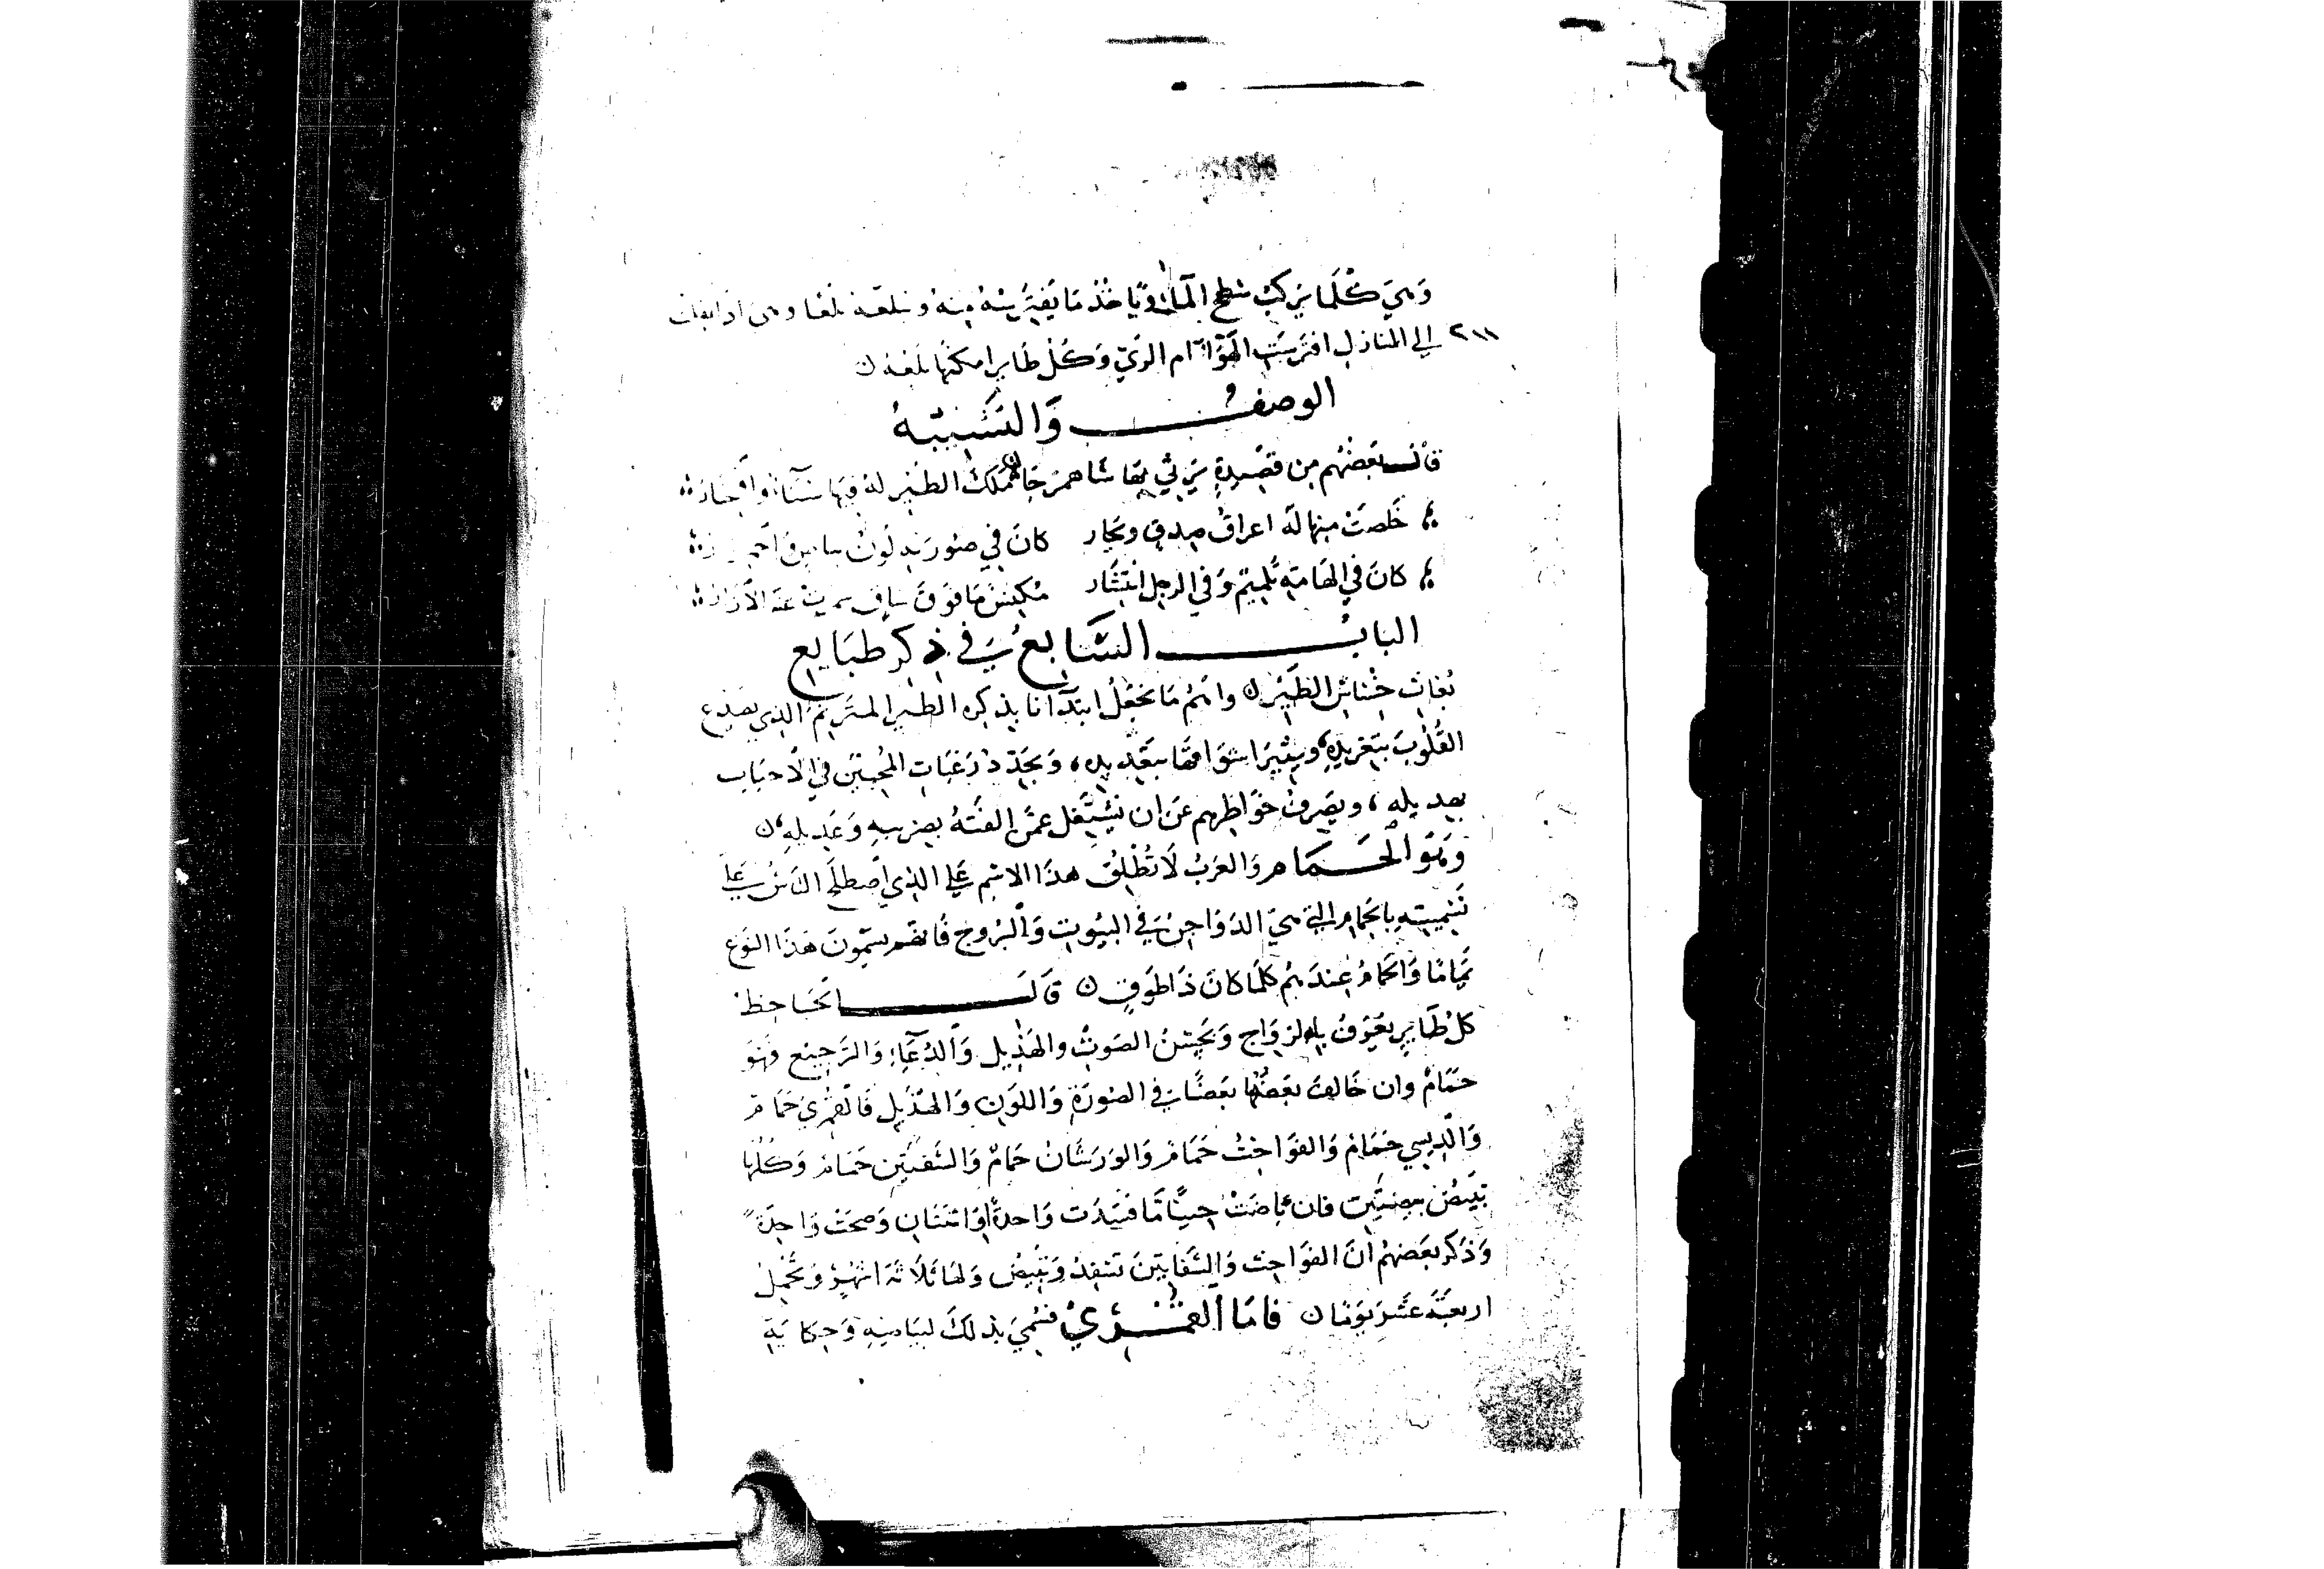 وَهيَ كُلَّمَا يركب سطح الماء وَيَاخُذ مَا يَفتَرِسُهُ مِنهُ وتبلعه بلعًا وهى اذا
٢١١ الي المنازل افترست الهَوَام الردي وَكُل طاير امكنها بَلعَهُ ن
الوصف وَالتَشبِيهُ
قال بَعضهُم مِن قصِيدةٍ يَرثي بهَا شاهمرجَا ملك الطير له فيها
خَلصَتْ منها لَهُ اعراقُ صِدقٍ ونجار كانَ في
كانَ في الهَامَةِ تَلمِيم وَفي الرجل انتِشَار
البابُ السَّابعُ في ذِكرِ طبَايع
بُغاث خشاش الطَيْر ن واهم مَا نجعَلُ ابتدَآنا بذكره الطير المترنِم الذِي يصدع
القُلُوبَ بتغريدِهِ، ويثيرَ اشوَاقهَا بتعديدِه، وَيجَدِّدُ رَغبَاتِ المحِبينَ في الاحبَاب
بهديله، ويصَرفُ خوَاطِرهم عَن ان تَشتَغل عمَّن الفَتْهُ بضريبهِ وَعَدِيلِهِ، ن
وَهوَ الحَمَام وَالعَرَبُ لَا تُطْلِقُ هذا الاسم عَلي الذي اصطلحَ الناسُ عَلي
تَسمِيتهِ بالحَمام التي هيَ الدوَاجِنُ في البيُوتِ وَالبُرُوج فانهم يسمّونَ هَذا النوع
يَمَامًا وَالحمَامُ عِندَهُم كلمَا كانَ ذَا طوقٍ ن قالَ الجَاحِظ
كلُ طَايرٍ يعَرفُ بالزوَاج وَبحُسنُ الصَوتُ والهَدِيل وَالدُعَآءِ وَالترجيع فهوَ
حمَامٌ وان خَالفَ بعَضُها بَعضًا في الصُورَةِ وَاللَونِ وَالهدَيل فالقمري حَمَام
وَالدبسي حمَامٌ وَالفوَاخِتُ حَمَامٌ وَالوَرَشَانُ حَمامٌ وَالشَفنين حمَامٌ وَكُلها
تبيَضُ بيضتَين فان بَاضَتْ حينًا مَّا فَسَدَت وَاحدةٌ او اثنتَانِ وَصحَتْ وَاحِدَةٌ
وَذَكر بعَضهُم انَّ الفوَاخِت وَالشَفانينَ تسفِدُ وَتَبِيضُ وَلهَا ثلَاثَهُ اشهُرٍ وَتحمِلُ
اربعَةَ عَشَر يَومًا ن فامَا القمْرِيُّ فسُميَ بذلكَ لبيَاضِهِ وَحِكايَة